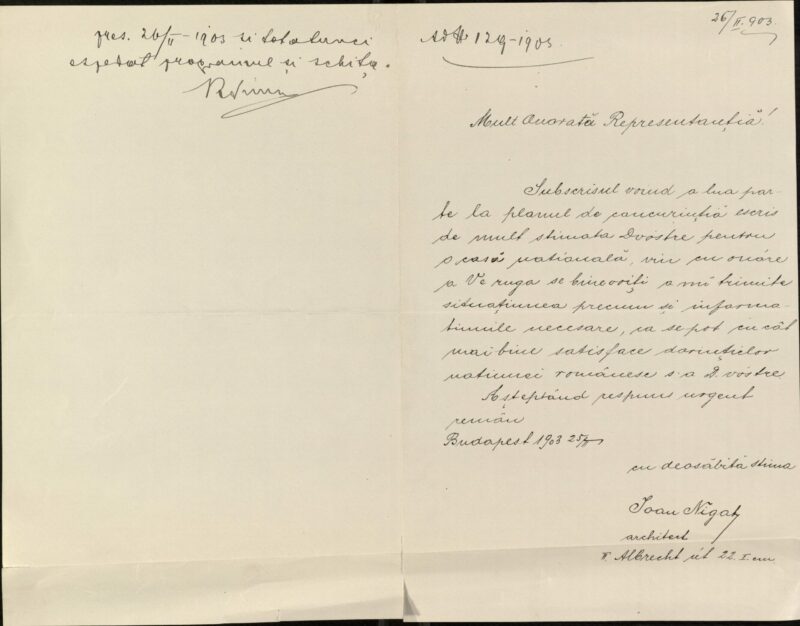 pres. 26/II - 1903 si totatunci
espedat programul și schița.
26/II. 903.
1903.
Mult Onorată Representanțiă!
Subscrisul voind a lua par-
te la planul de concurință escris
de mult stimata Dvóstre pentru
o casă natională, viu cu onóre
a Ve ruga se binevoiți a mi trimite
situațiunea precum și informa-
tiunile necesare, ca se pot cu cât
mai bine satisface dorințielor
natiunei românesc s-a D. vóstre
Așteptând respuns urgent
remân
Budapest 1903 25/II
cu deosăbită stima
Ioan Nigat
architect
II. Albrecht út 22. I. em